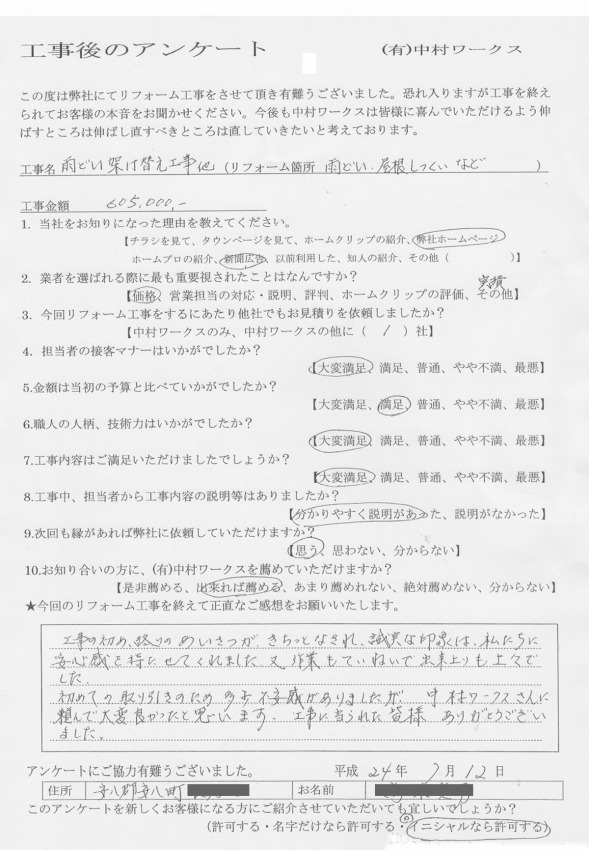 工事後のアンケート　(有)中村ワークス
この度は弊社にてリフォーム工事をさせて頂き有難うございました。恐れ入りますが工事を終え
られてお客様の本音をお聞かせください。今後も中村ワークスは皆様に喜んでいただけるよう伸
ばすところは伸ばし直すべきところは直していきたいと考えております。
工事名 雨どい架け替え工事他 (リフォーム箇所 雨どい、屋根しっくい など )
工事金額 605,000,-
1. 当社をお知りになった理由を教えてください。
【チラシを見て、タウンページを見て、ホームクリップの紹介、弊社ホームページ
ホームプロの紹介、新聞広告、以前利用した、知人の紹介、その他（ )】
2. 業者を選ばれる際に最も重要視されたことはなんですか？ 実績
【価格、営業担当の対応・説明、評判、ホームクリップの評価、その他】
3. 今回リフォーム工事をするにあたり他社でもお見積りを依頼しましたか？
【中村ワークスのみ、中村ワークスの他に（ / ）社】
4. 担当者の接客マナーはいかがでしたか？
【大変満足、満足、普通、やや不満、最悪】
5.金額は当初の予算と比べていかがでしたか？
【大変満足、満足、普通、やや不満、最悪】
6.職人の人柄、技術力はいかがでしたか？
【大変満足、満足、普通、やや不満、最悪】
7.工事内容はご満足いただけましたでしょうか？
【大変満足、満足、普通、やや不満、最悪】
8.工事中、担当者から工事内容の説明等はありましたか？
【分かりやすく説明があった、説明がなかった】
9.次回も縁があれば弊社に依頼していただけますか？
【思う、思わない、分からない】
10.お知り合いの方に、(有)中村ワークスを薦めていただけますか？
【是非薦める、出来れば薦める、あまり薦めれない、絶対薦めない、分からない】
★今回のリフォーム工事を終えて正直なご感想をお願いいたします。
工事の初め、終りのあいさつが、きちっとなされ、誠実な印象は、私たちに
安心感を持たせてくれました。又、作業もていねいで出来上りも上々で
した。
初めての取り引きのため多少不安感がありましたが、中村ワークスさんに
頼んで大変良かったと思います。工事に当られた皆様 ありがとうござい
ました。
アンケートにご協力有難うございました。 平成 24 年 7 月 12 日
住所 安八郡安八町 お名前
このアンケートを新しくお客様になる方にご紹介させていただいても宜しいでしょうか？
(許可する・名字だけなら許可する・イニシャルなら許可する)